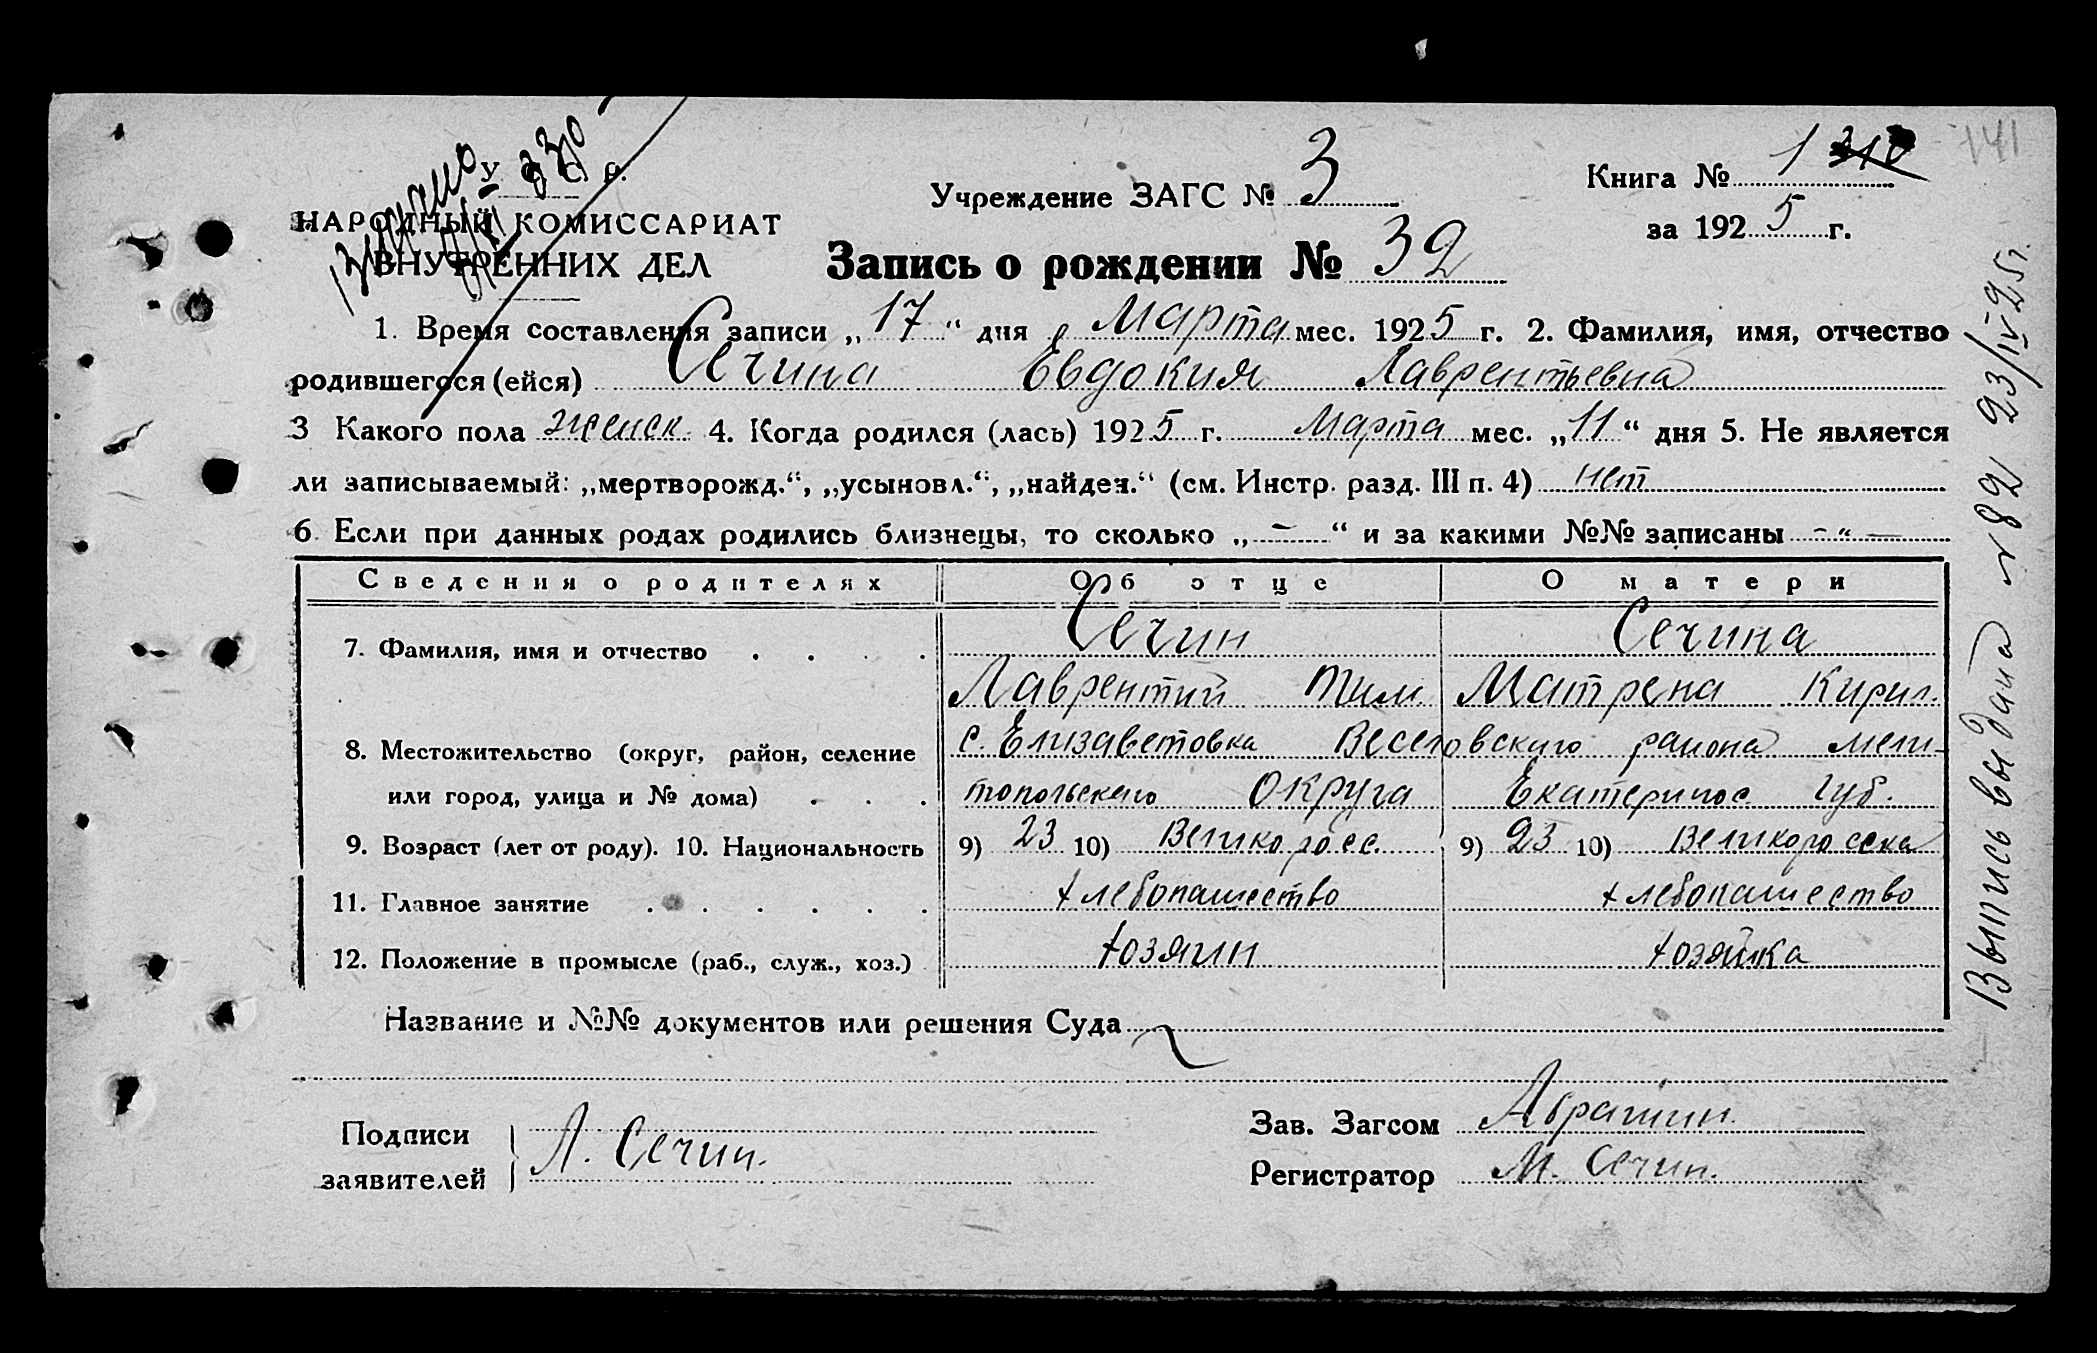 У. С. С. Р.
НАРОДНЫЙ КОМИССАРИАТ
ВНУТРЕННИХ ДЕЛ
Учреждение ЗАГС № 3
Книга № 1
141
за 1925 г.
Запись о рождении № 32
1. Время составления записи „17“ дня Марта мес. 1925 г. 2. Фамилия, имя, отчество
родившегося (ейся) Сечина Евдокия Лаврентьевна
3 Какого пола женск. 4. Когда родился (лась) 1925 г. Марта мес. „11“ дня 5. Не является
ли записываемый: „мертворожд.“, „усыновл.“, „найден.“ (см. Инстр. разд. III п. 4) нет
6. Если при данных родах родились близнецы, то сколько „ — “ и за какими №№ записаны - “ —
Сведения о родителях Об отце О матери
7. Фамилия, имя и отчество . . . . Сечин Сечина
Лаврентий Тим. Матрена Кирил.
8. Местожительство (округ, район, селение с. Елизаветовка Веселовского района мели-
или город, улица и № дома) . . . топольского Округа Екатеринос. губ.
9. Возраст (лет от роду). 10. Национальность 9) 23 10) Великоросс. 9) 23 10) Великоросска
11. Главное занятие . . . . . . хлебопашество хлебопашество
12. Положение в промысле (раб., служ., хоз.) . хозяин хозяйка
Название и №№ документов или решения Суда
Подписи
заявителей
Л. Сечин.
Зав. Загсом Абрашин.
Регистратор М. Сечин.
Выпись выдана № 82 23/IV 25г.